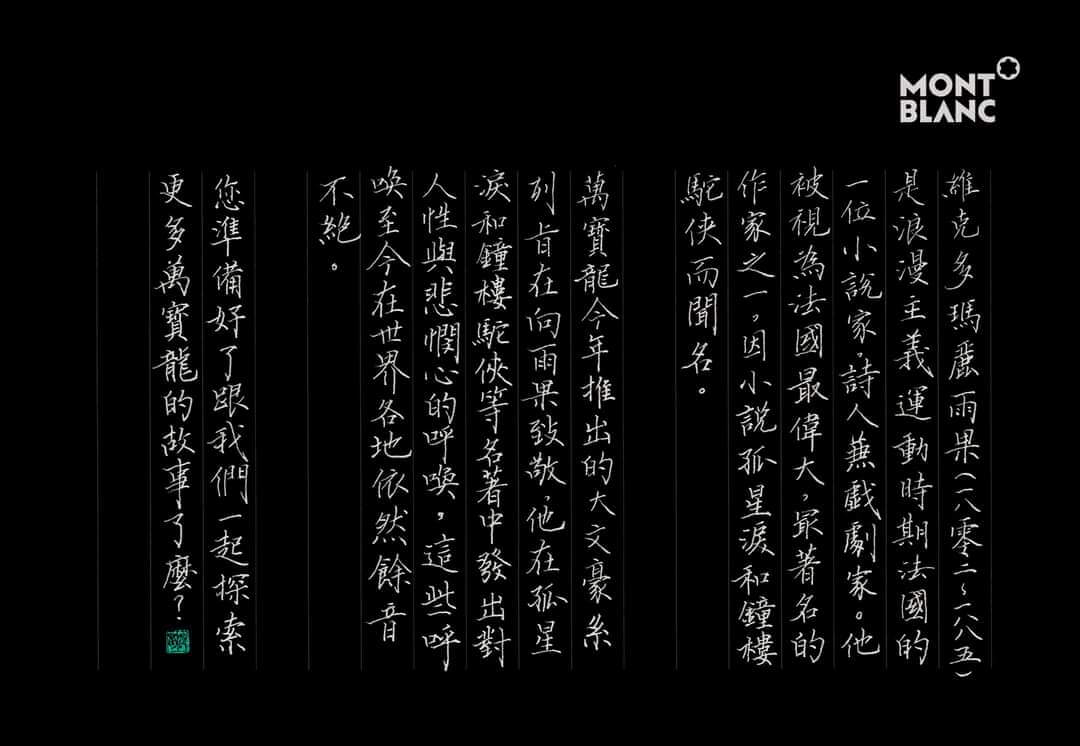 MONT
BLANC
維克多瑪麗雨果(一八零二~一八八五)
是浪漫主義運動時期法國的
一位小說家,詩人兼戲劇家。他
被視為法國最偉大,最著名的
作家之一,因小說孤星淚和鐘樓
駝俠而聞名。
萬寶龍今年推出的大文豪系
列旨在向雨果致敬,他在孤星
淚和鐘樓駝俠等名著中發出對
人性與悲憫心的呼喚,這些呼
喚至今在世界各地依然餘音
不絕。
您準備好了跟我們一起探索
更多萬寶龍的故事了麼?